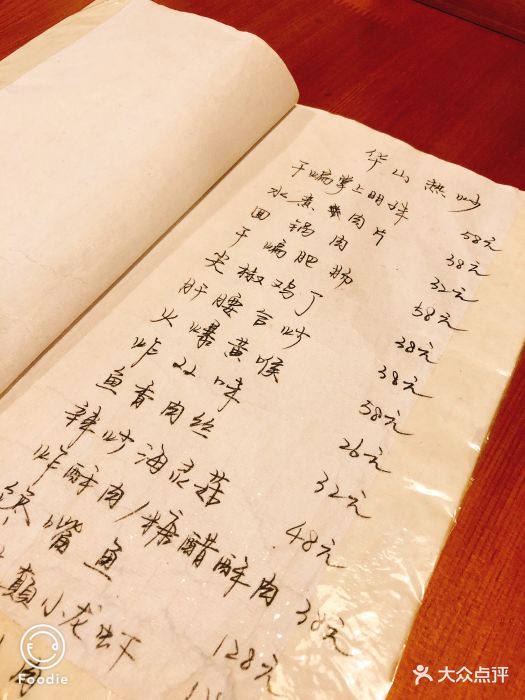 华山热炒
干煸掌上明珠 58元
水煮肉片 38元
回锅肉 32元
干煸肥肠 58元
尖椒鸡丁 38元
肝腰合炒 38元
火爆黄喉 58元
炸双味 26元
鱼香肉丝 32元
辣炒海灵菇 48元
炸酥肉/糖醋酥肉 38元
嘴鱼 128元
颠小龙虾
肉
Foodie
大众点评